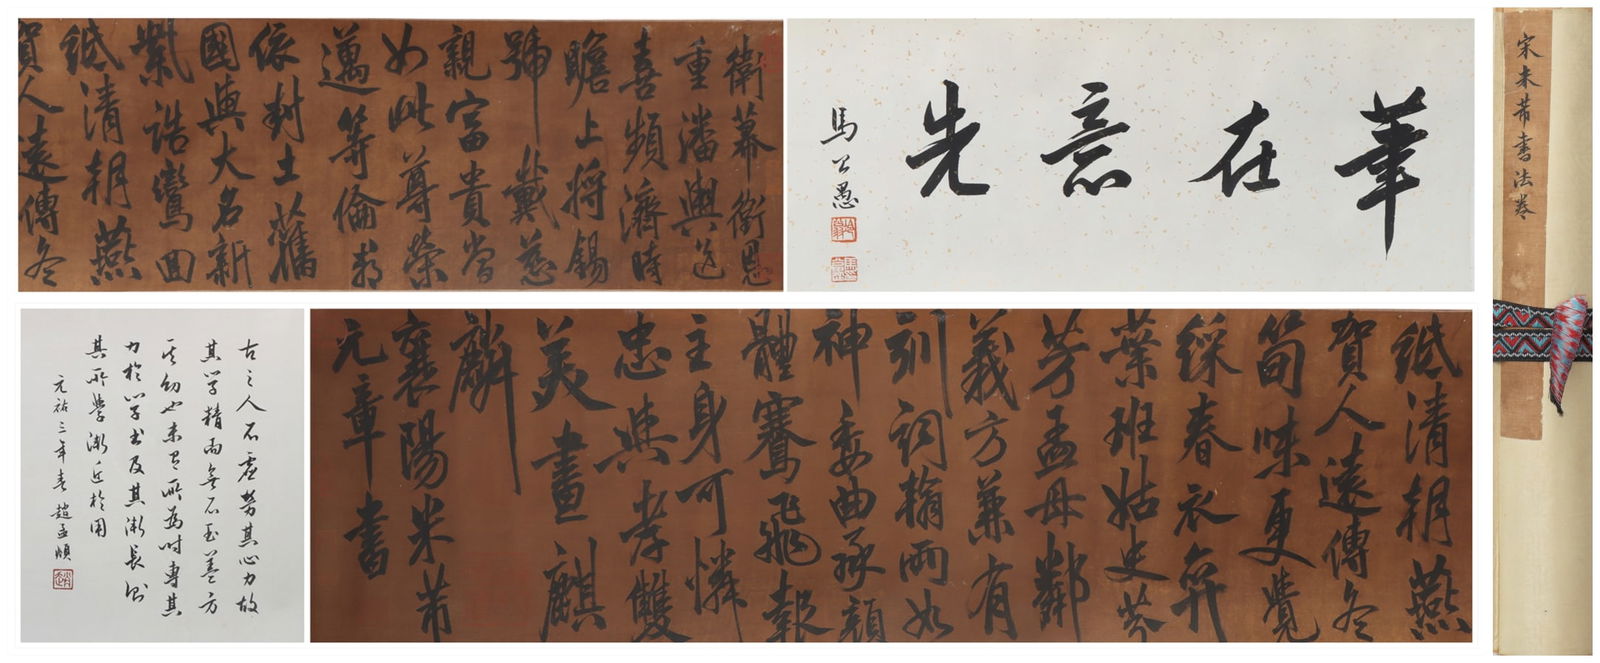 衛幕銜恩
重潘輿送
喜頻濟時
瞻上將錫
號戴慈
親富貴當
如此尊榮
邁等倫郡
依封土舊
國與大名新
紫誥鸞回
紙清朝燕
賀人遠傳冬
筆在意先
馬公愚
宋米芾書法卷
紙清朝燕
賀人遠傳冬
筍味更覺
綵春衣弈
葉班姑史芬
芳孟母鄰
義方兼有
訓詞翰兩如
神委曲承顏
體騫飛報
主身可憐
忠與孝雙
美畫麒
麟
襄陽米芾
元章書
古之人不虛勞其心力故
其學精而無不至蓋方
其幼也未有所為時專其
力於學書及其漸長則
其所學漸近於用
元祐三年春 趙孟頫